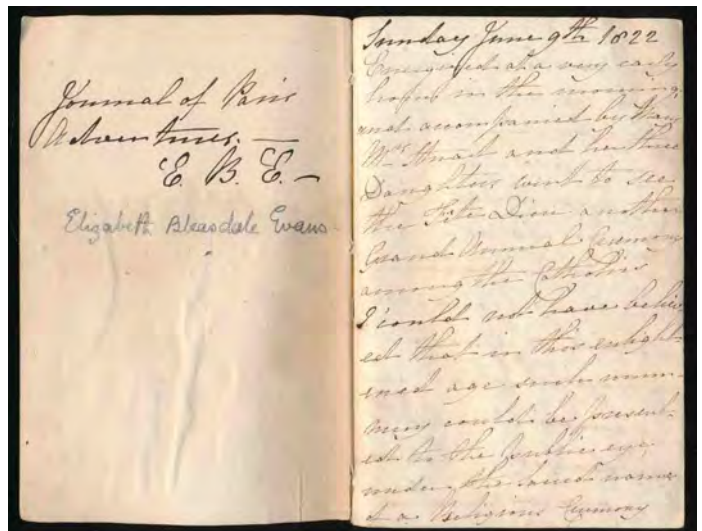 Journal of Paris
Adventures. —
E. B. E. —
Elizabeth Bleasdale Evans
Sunday June 9th 1822
Emerged at a very early
hour in the morning,
and accompanied by
Mrs. Stuart and her three
Daughters went to see
the Fete Dieu another
Grand Annual Ceremony
among the Catholics
I could not have believ
ed that in this enlight
ened age such mum-
mery could be present-
ed to the Public eye,
under the
of a Religious Ceremony